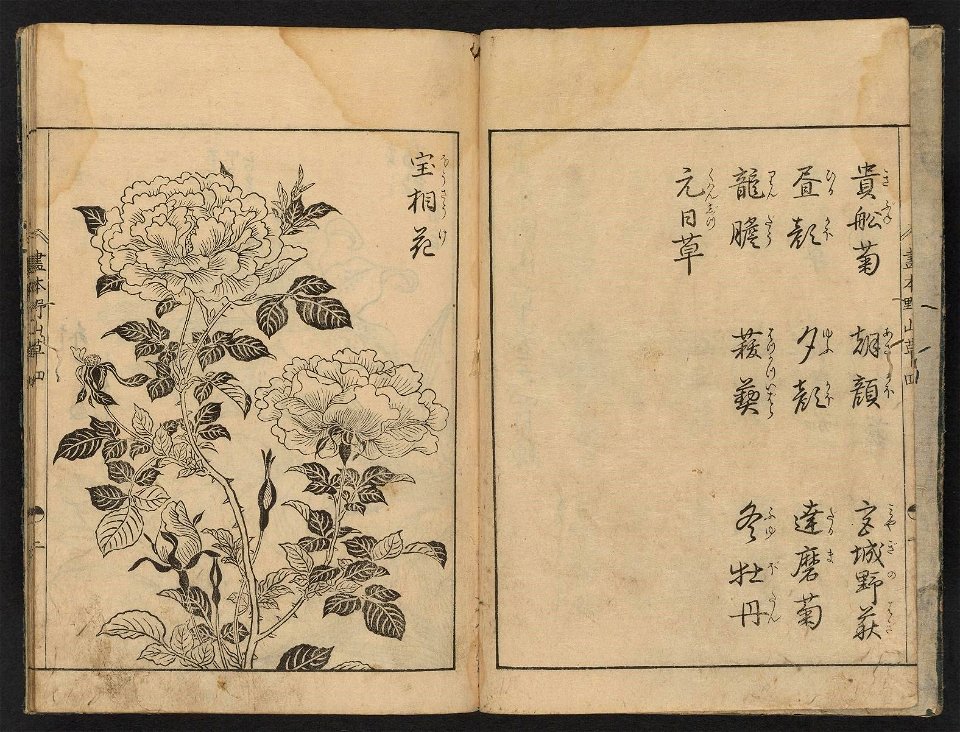 貴舩菊 朝顔 宮城野萩
昼顔 夕顔 達磨菊
龍膽 菝葜 冬牡丹
元日草
畫本野山草 四
宝相花
畫本野山草 四